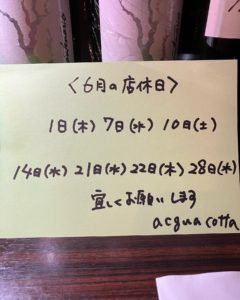 〈6月の店休日〉
1日(木) 7日(水) 10日(土)
14日(水) 21日(水) 22日(木) 28日(水)
宜しくお願いします
acqua cotta